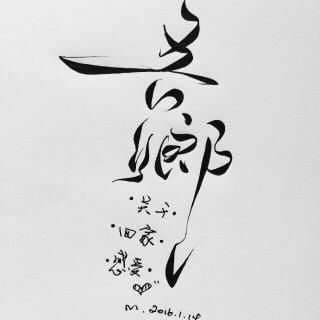 吾鄉
·关于·
·回家·
·恋爱·
M.2016.1.18